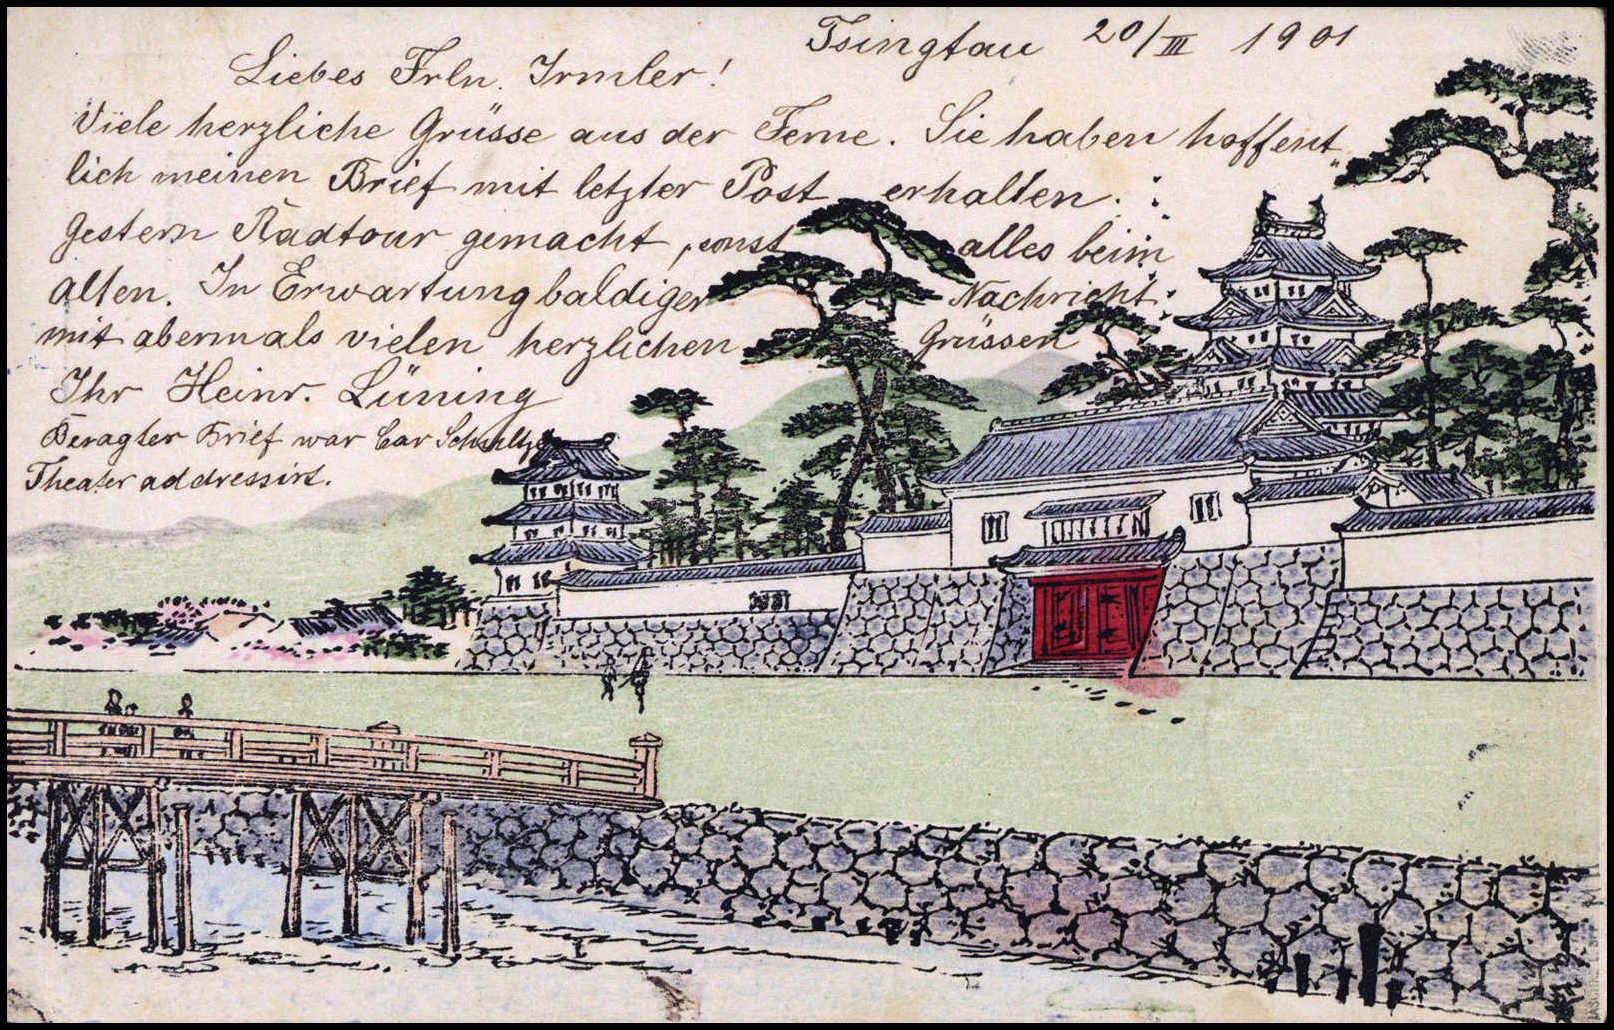 Tsingtau 20/III 1901
Liebes Frln. Irmler!
Viele herzliche Grüsse aus der Ferne. Sie haben hoffent„
lich meinen Brief mit letzter Post erhalten.
Gestern Radtour gemacht, sonst alles beim
alten. In Erwartung baldiger Nachricht
mit abermals vielen herzlichen Grüssen
Ihr Heinr. Lüning
Beragter Brief war Carl Schultze
Theater addressirt.